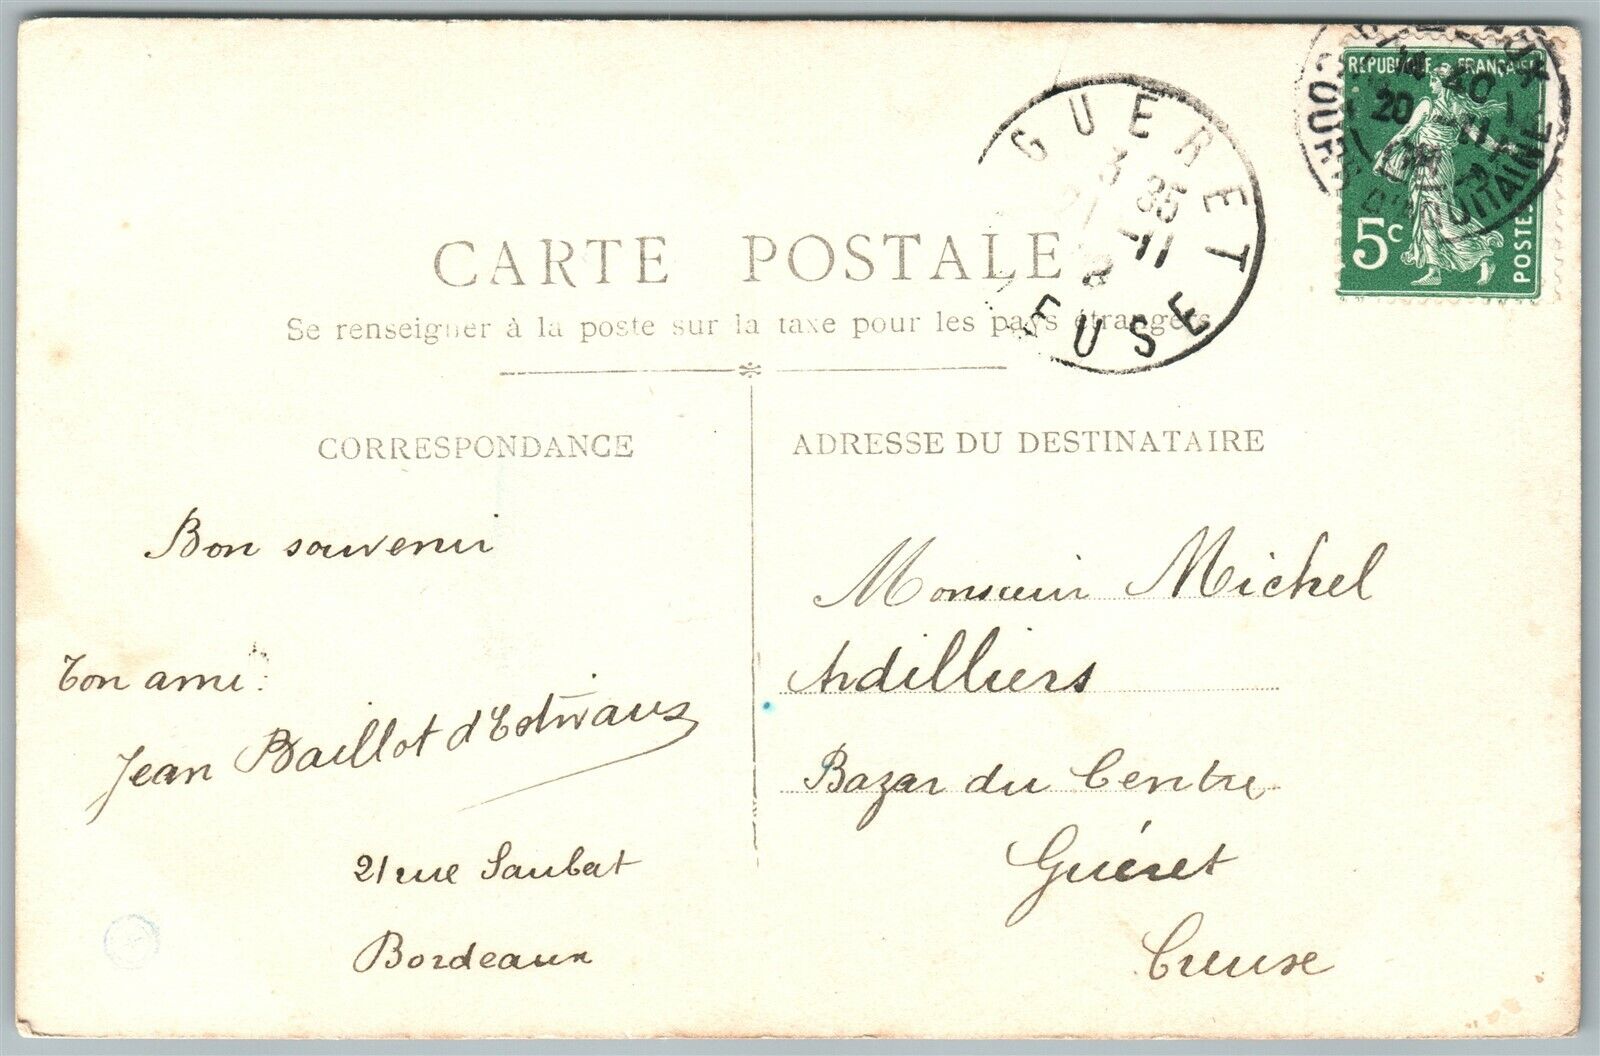 RÉPUBLIQUE FRANÇAISE
5c
POSTES
BORDEAUX
COURS D'AQUITAINE
20 -11
GUERET
3 35
-11
CREUSE
CARTE POSTALE
Se renseigner à la poste sur la taxe pour les pays étrangers
CORRESPONDANCE
Bon souvenir
Ton ami:
Jean Baillot d'Estivaux
21 rue Saubat
Bordeaux
ADRESSE DU DESTINATAIRE
Monsieur Michel
Ardilliers
Bazar du Centre
Guéret
Creuse